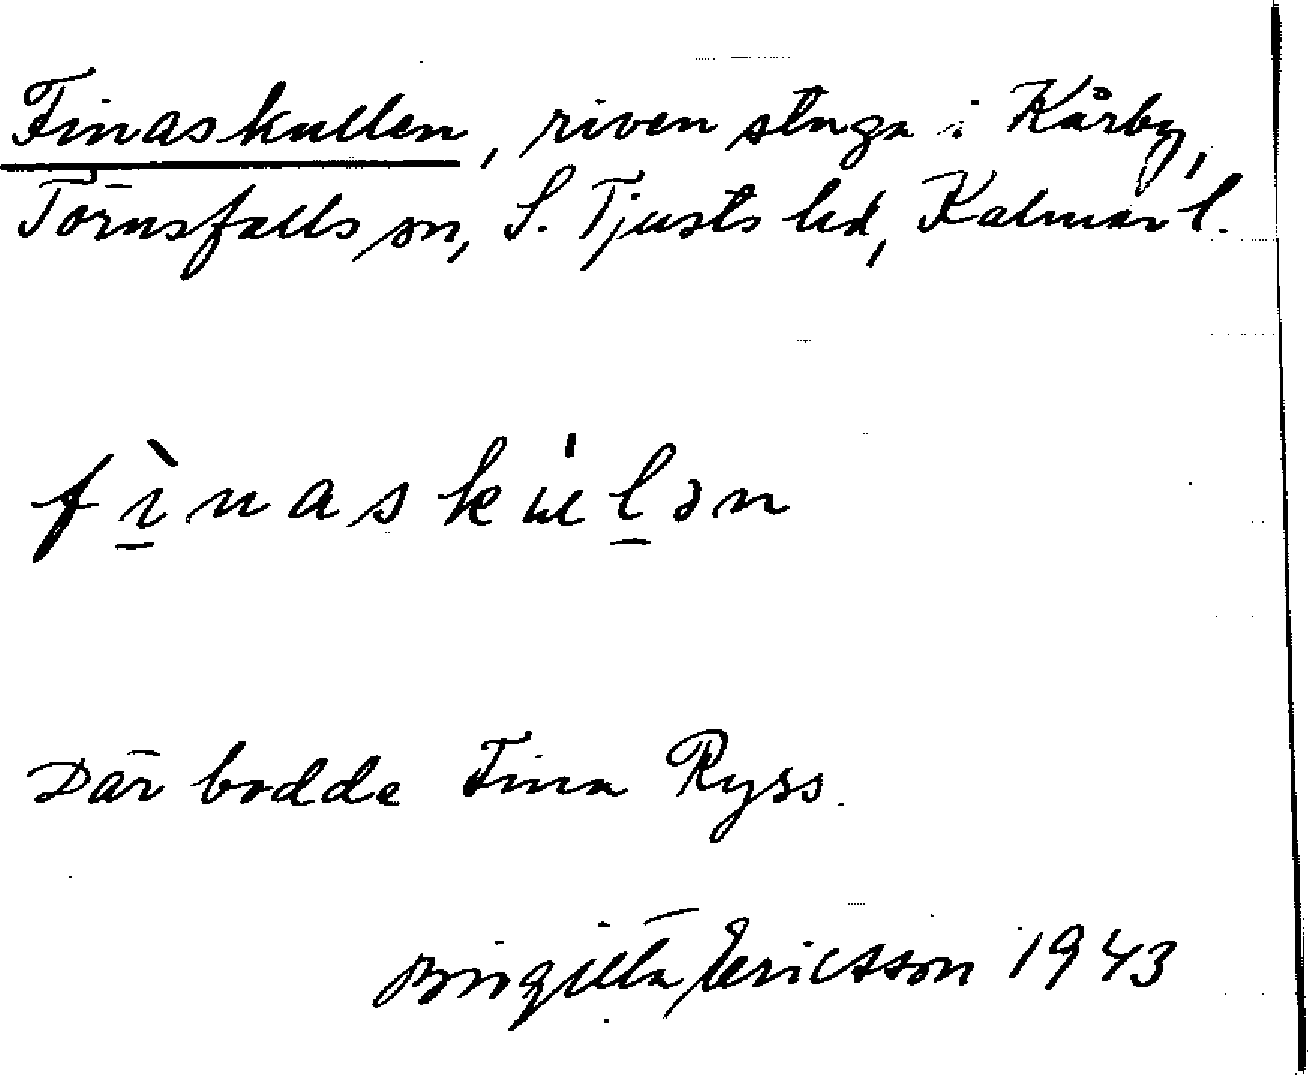 Finaskullen, riven stuga i Kårby,
Törnsfalls sn, S. Tjusts hd, Kalmar l.
fı̱̀naskúḻən
Där bodde Fina Ryss.
Birgitta Ericsson 1943